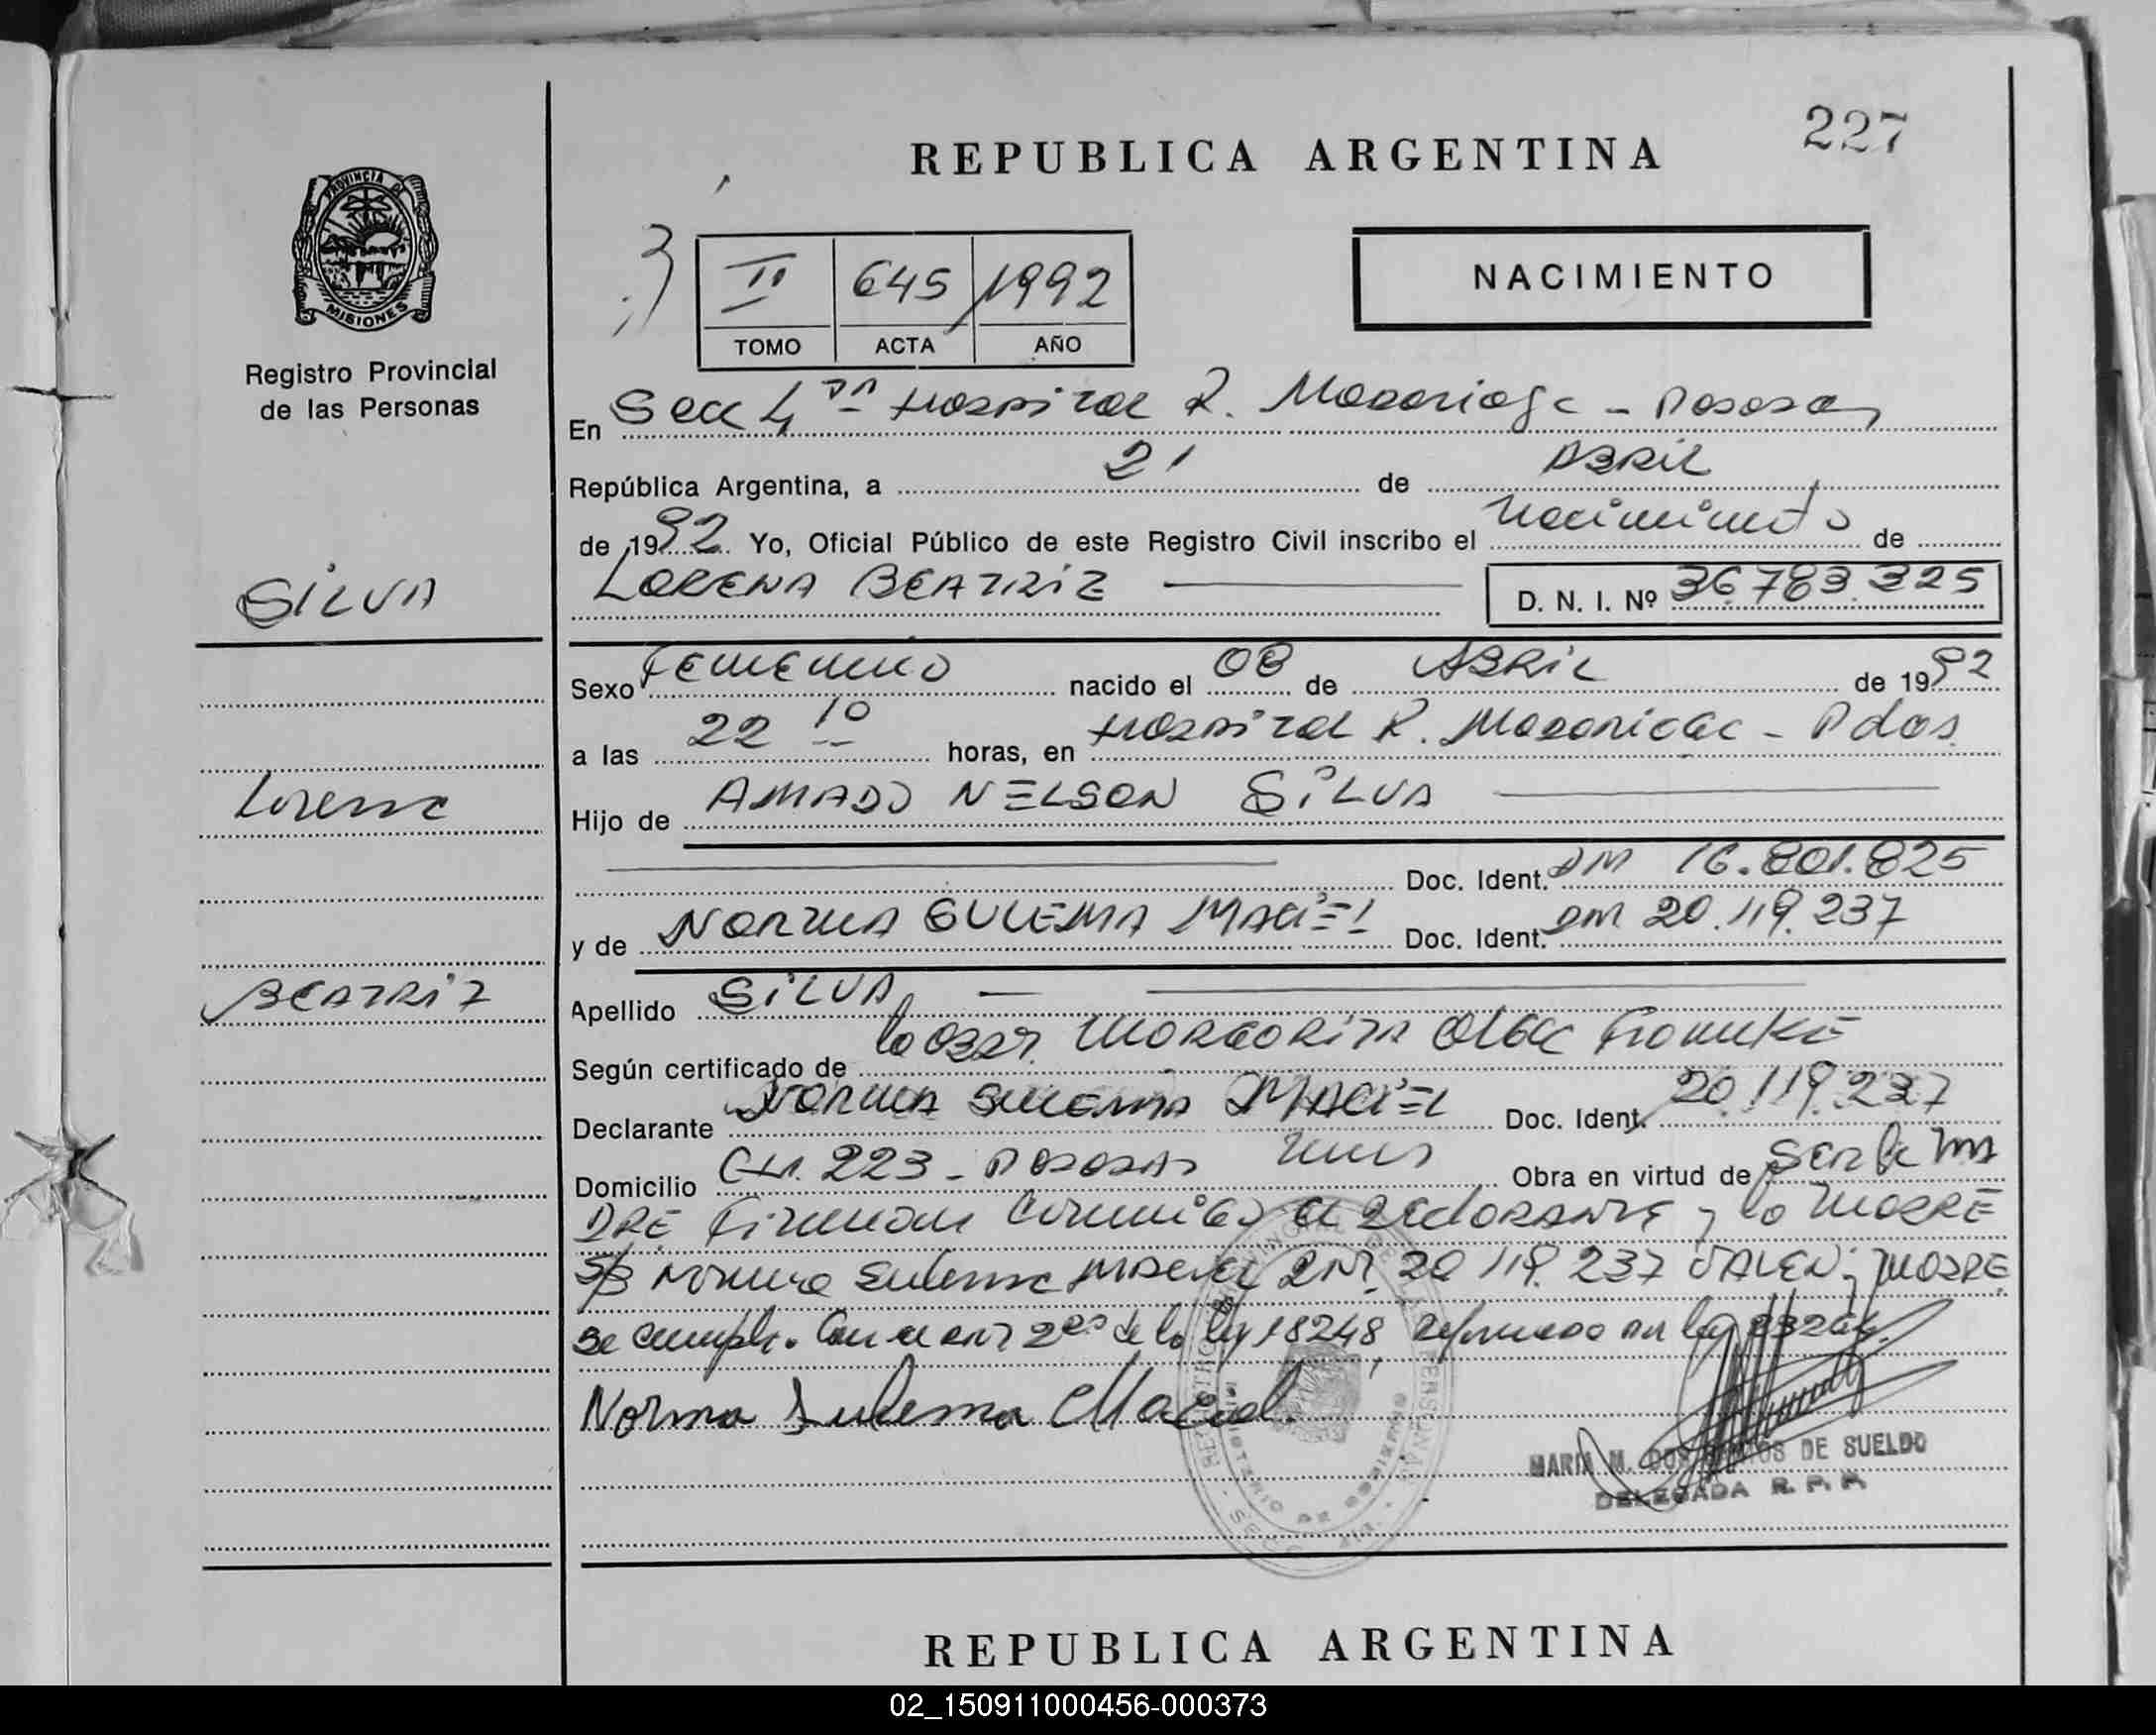 227
REPUBLICA ARGENTINA
PROVINCIA DE
MISIONES
Registro Provincial
de las Personas
II 645 1992
TOMO ACTA AÑO
NACIMIENTO
En Secc 4ta Hospital R. Madariaga - Posadas
República Argentina, a 21 de ABRIL
de 1992 Yo, Oficial Público de este Registro Civil inscribo el Nacimiento de
SILVA
LORENA BEATRIZ D. N. I. Nº 36.783.325
Sexo Femenino nacido el 08 de ABRIL de 1992
a las 22 10 horas, en Hospital R. Madariaga - Pdas
Lorena
Hijo de AMADO NELSON SILVA
Doc. Ident. DM 16.801.825
y de NORMA SULEMA MACIEL Doc. Ident. DM 20.119.237
BEATRIZ
Apellido SILVA
Según certificado de la obst. MARGARITA OLGA
Declarante NORMA SULEMA MACIEL Doc. Ident. 20.119.237
Domicilio CH. 223 - POSADAS Mnes Obra en virtud de ser la MA
DRE Firman conmigo el declarante y la MADRE
S/B Norma Sulema Maciel DM. 20.119.237 VALEN; MADRE
se cumple con el art 2do de la ley 18248, reformado por ley
Norma Sulema Maciel
MARIA M. DOS SANTOS DE SUELDO
DELEGADA R. P. P.
REPUBLICA ARGENTINA
02_150911000456-000373